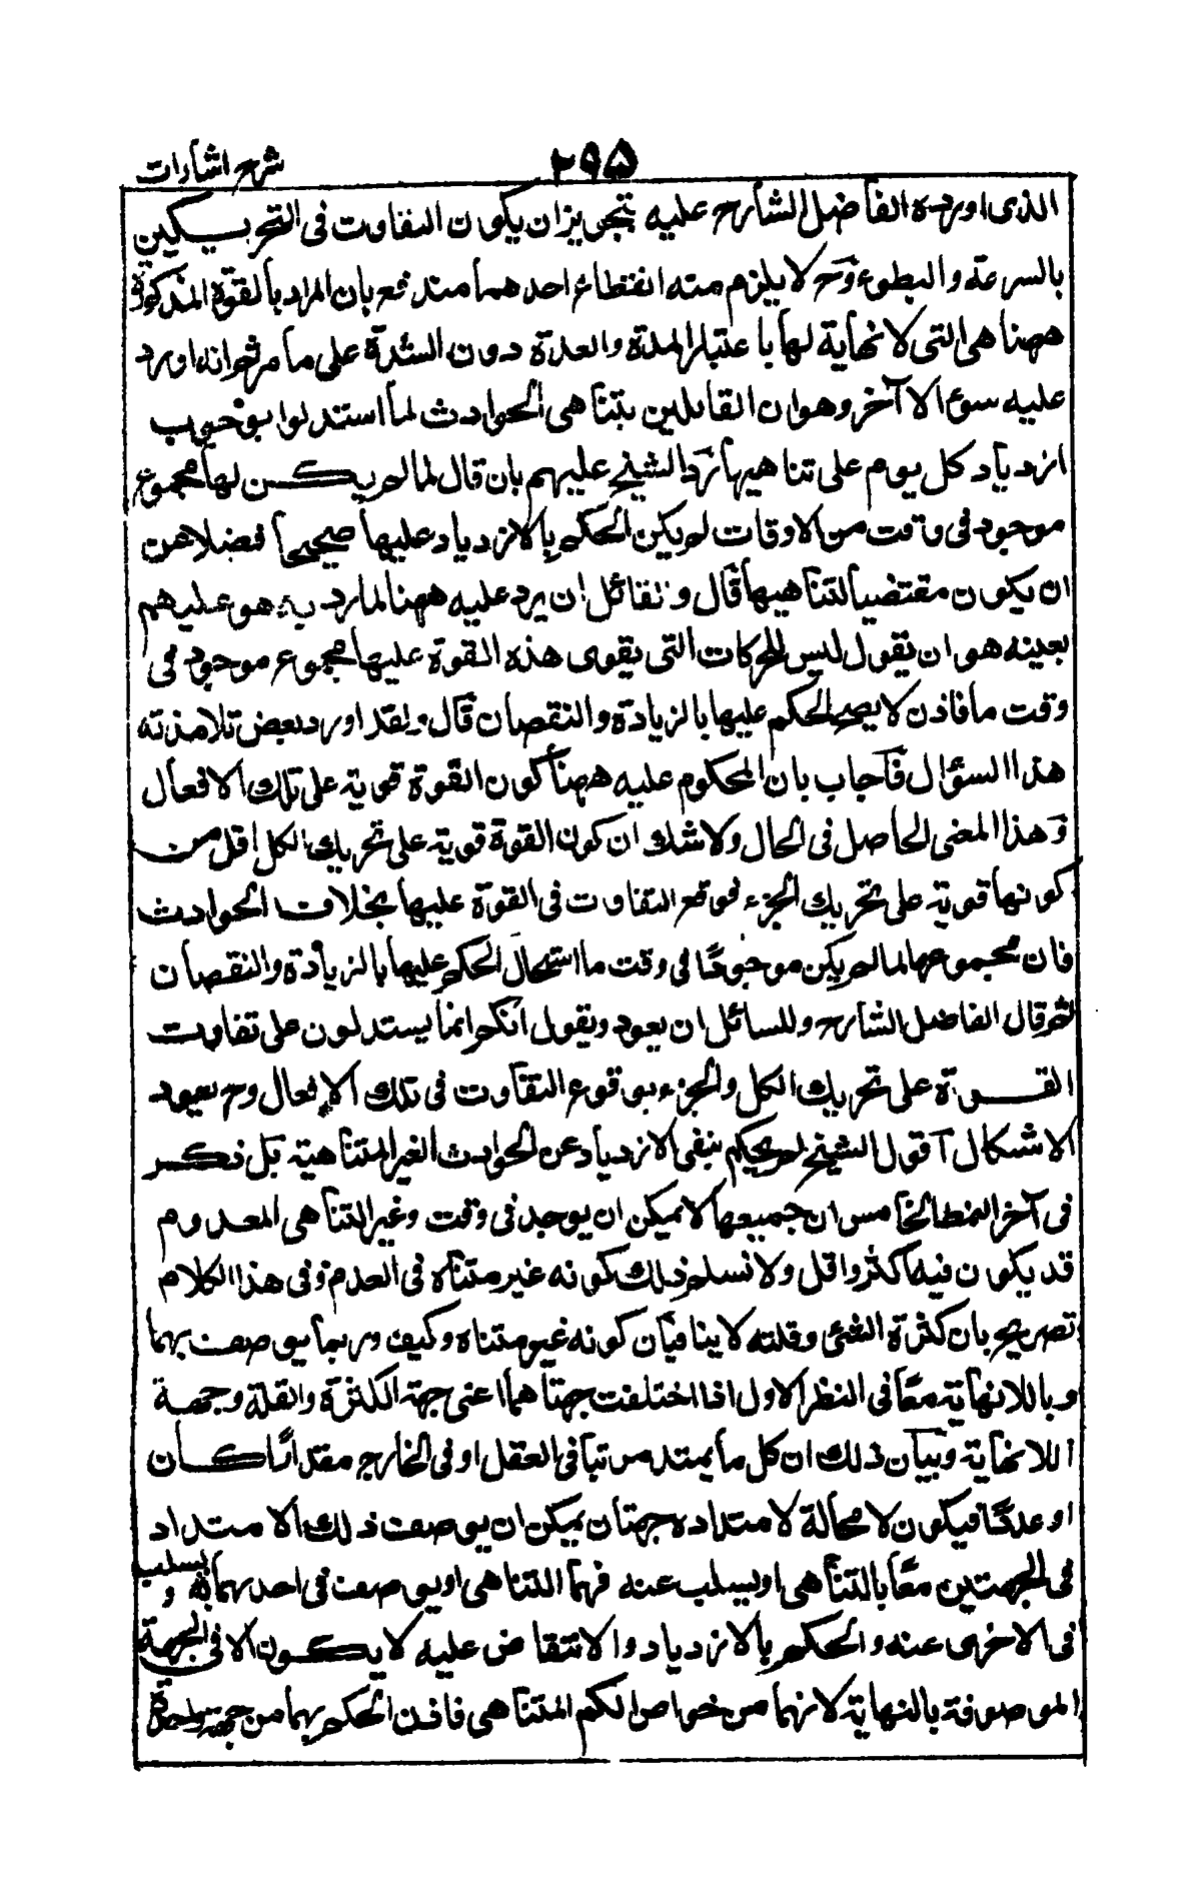 شرح اشارات
٢٩٥
الذى اورده الفاضل الشارح عليه بتجويز ان يكون التفاوت فى التحريكين
بالسرعة والبطوء وح لا يلزم منه انقطاع احدهما مندفع بان المراد بالقوة المذكورة
ههنا هى التى لا نهاية لها باعتبار المدة والعدة دون الشدة على ما مر ثم انه اورد
عليه سؤالا آخر وهو ان القائلين بتناهى الحوادث لما استدلوا بوجوب
ازدياد كل يوم على تناهيها رد الشيخ عليهم بان قال لما لم يكن لها مجموع
موجود فى وقت من الاوقات لم يكن الحكم بالازدياد عليها صحيحا فضلا عن
ان يكون مقتضيا لتناهيها قال ولقائل ان يرد عليه ههنا لما رد به هو عليهم
بعينه هو ان يقول ليس للحركات التى يقوى هذه القوة عليها مجموع موجود فى
وقت ما فاذن لا يصح الحكم عليها بالزيادة والنقصان قال ولقد اورد بعض تلامذته
هذا السؤال فاجاب بان المحكوم عليه ههنا كون القوة قوية على تلك الافعال
وهذا المعنى الحاصل فى الحال ولا شك ان كون القوة قوية على تحريك الكل اقل من
كونها قوية على تحريك الجزء فوقع التفاوت فى القوة عليها بخلاف الحوادث
فان مجموعها لما لم يكن موجودًا فى وقت ما استحال الحكم عليها بالزيادة والنقصان
ثم قال الفاضل الشارح وللسائل ان يعود ويقول انكم انما يستدلون على تفاوت
القوة على تحريك الكل والجزء بوقوع التفاوت فى تلك الافعال وح يعود
الاشكال اقول الشيخ لم يحكم بنفى الازدياد عن الحوادث الغير المتناهية بل ذكر
فى آخر النمط الخامس ان جميعها لا يمكن ان يوجد فى وقت وغير التناهى المعدوم
قد يكون فيه اكثر واقل ولا نسلم ذلك كونه غير متناه فى العدم وفى هذا الكلام
تصريح بان كثرة الشئ وقلته لا ينافيان كونه غير متناه وكيف وربما يوصف بهما
وباللانهاية معًا فى النظر الاول اذا اختلفت جهتاهما اعنى جهة الكثرة والقلة وجهة
اللانهاية وبيان ذلك ان كل ما يمتد مرتبا فى العقل او فى الخارج مقدارًا كان
او عددًا فيكون لا محالة لامتداده جهتان يمكن ان يوصف ذلك الامتداد
فى الجهتين معًا بالتناهى او يسلب عنه فهما التناهى او يوصف فى احدهما به ويسلب
فى الاخرى عنه والحكم بالازدياد والانتقاض عليه لا يكون الا فى الجهة
الموصوفة بالنهاية لانهما من خواص الكم المتناهى فاذن الحكم بهما من جهة واحدة